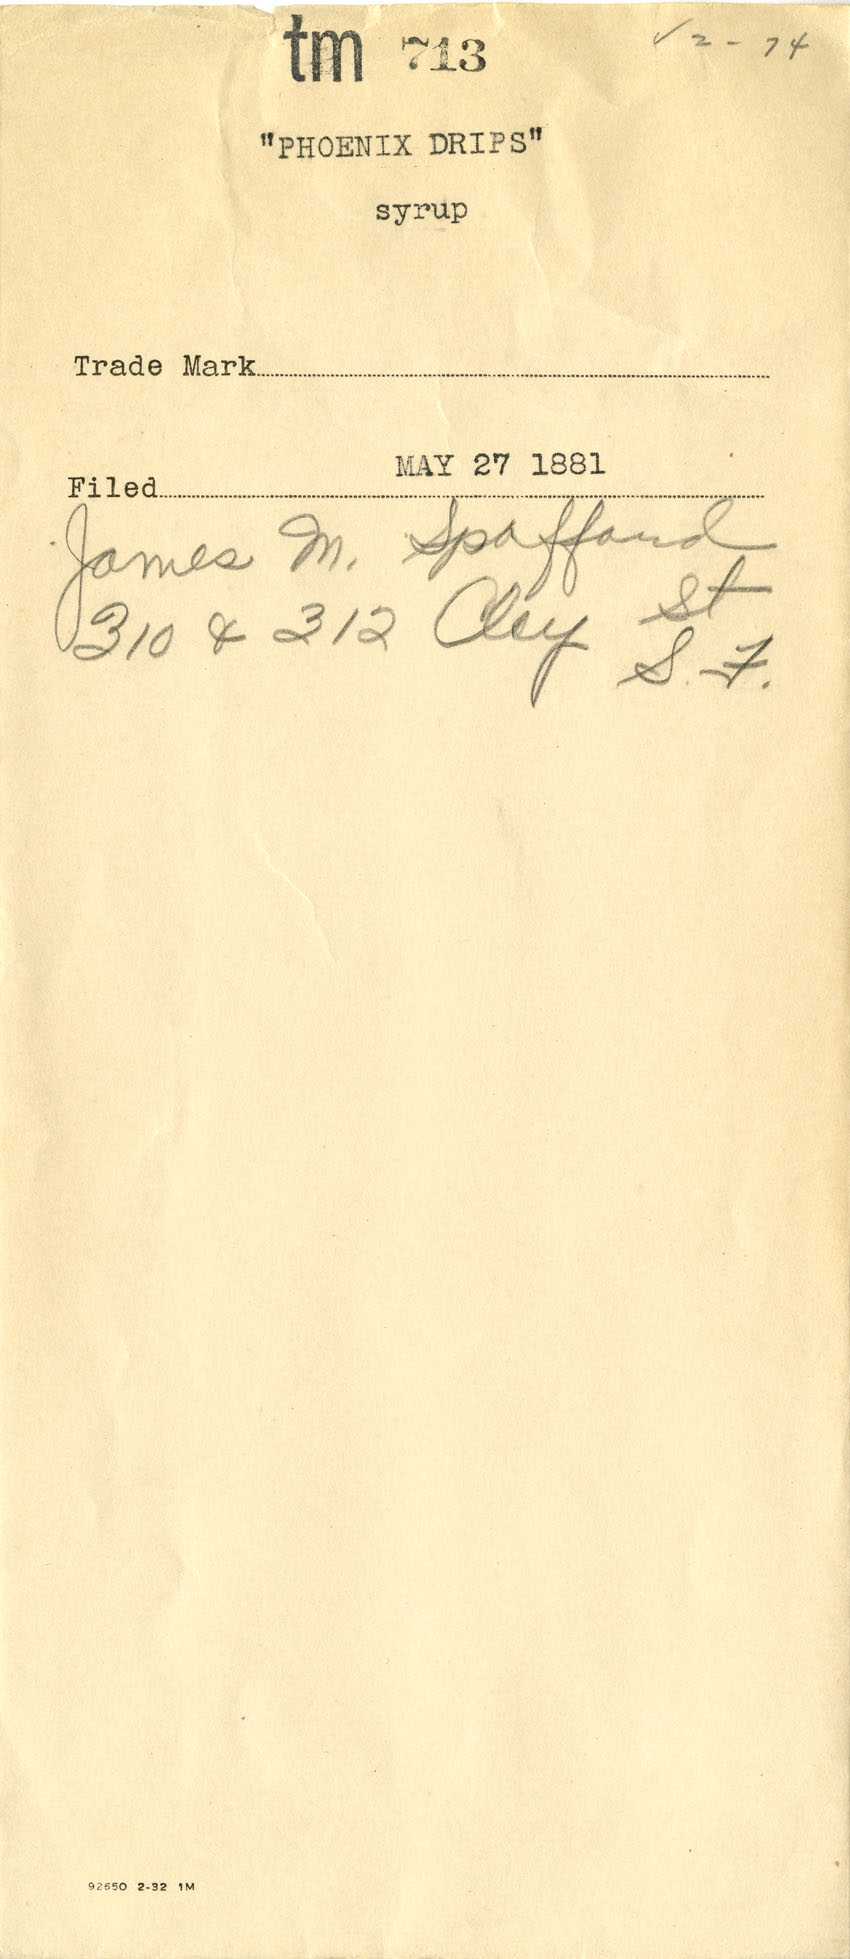 tm 713
✓ 2 - 74
"PHOENIX DRIPS"
syrup
Trade Mark
MAY 27 1881
Filed
James M. Spafford
310 & 312 Clay St
S. F.
92650 2-32 1M